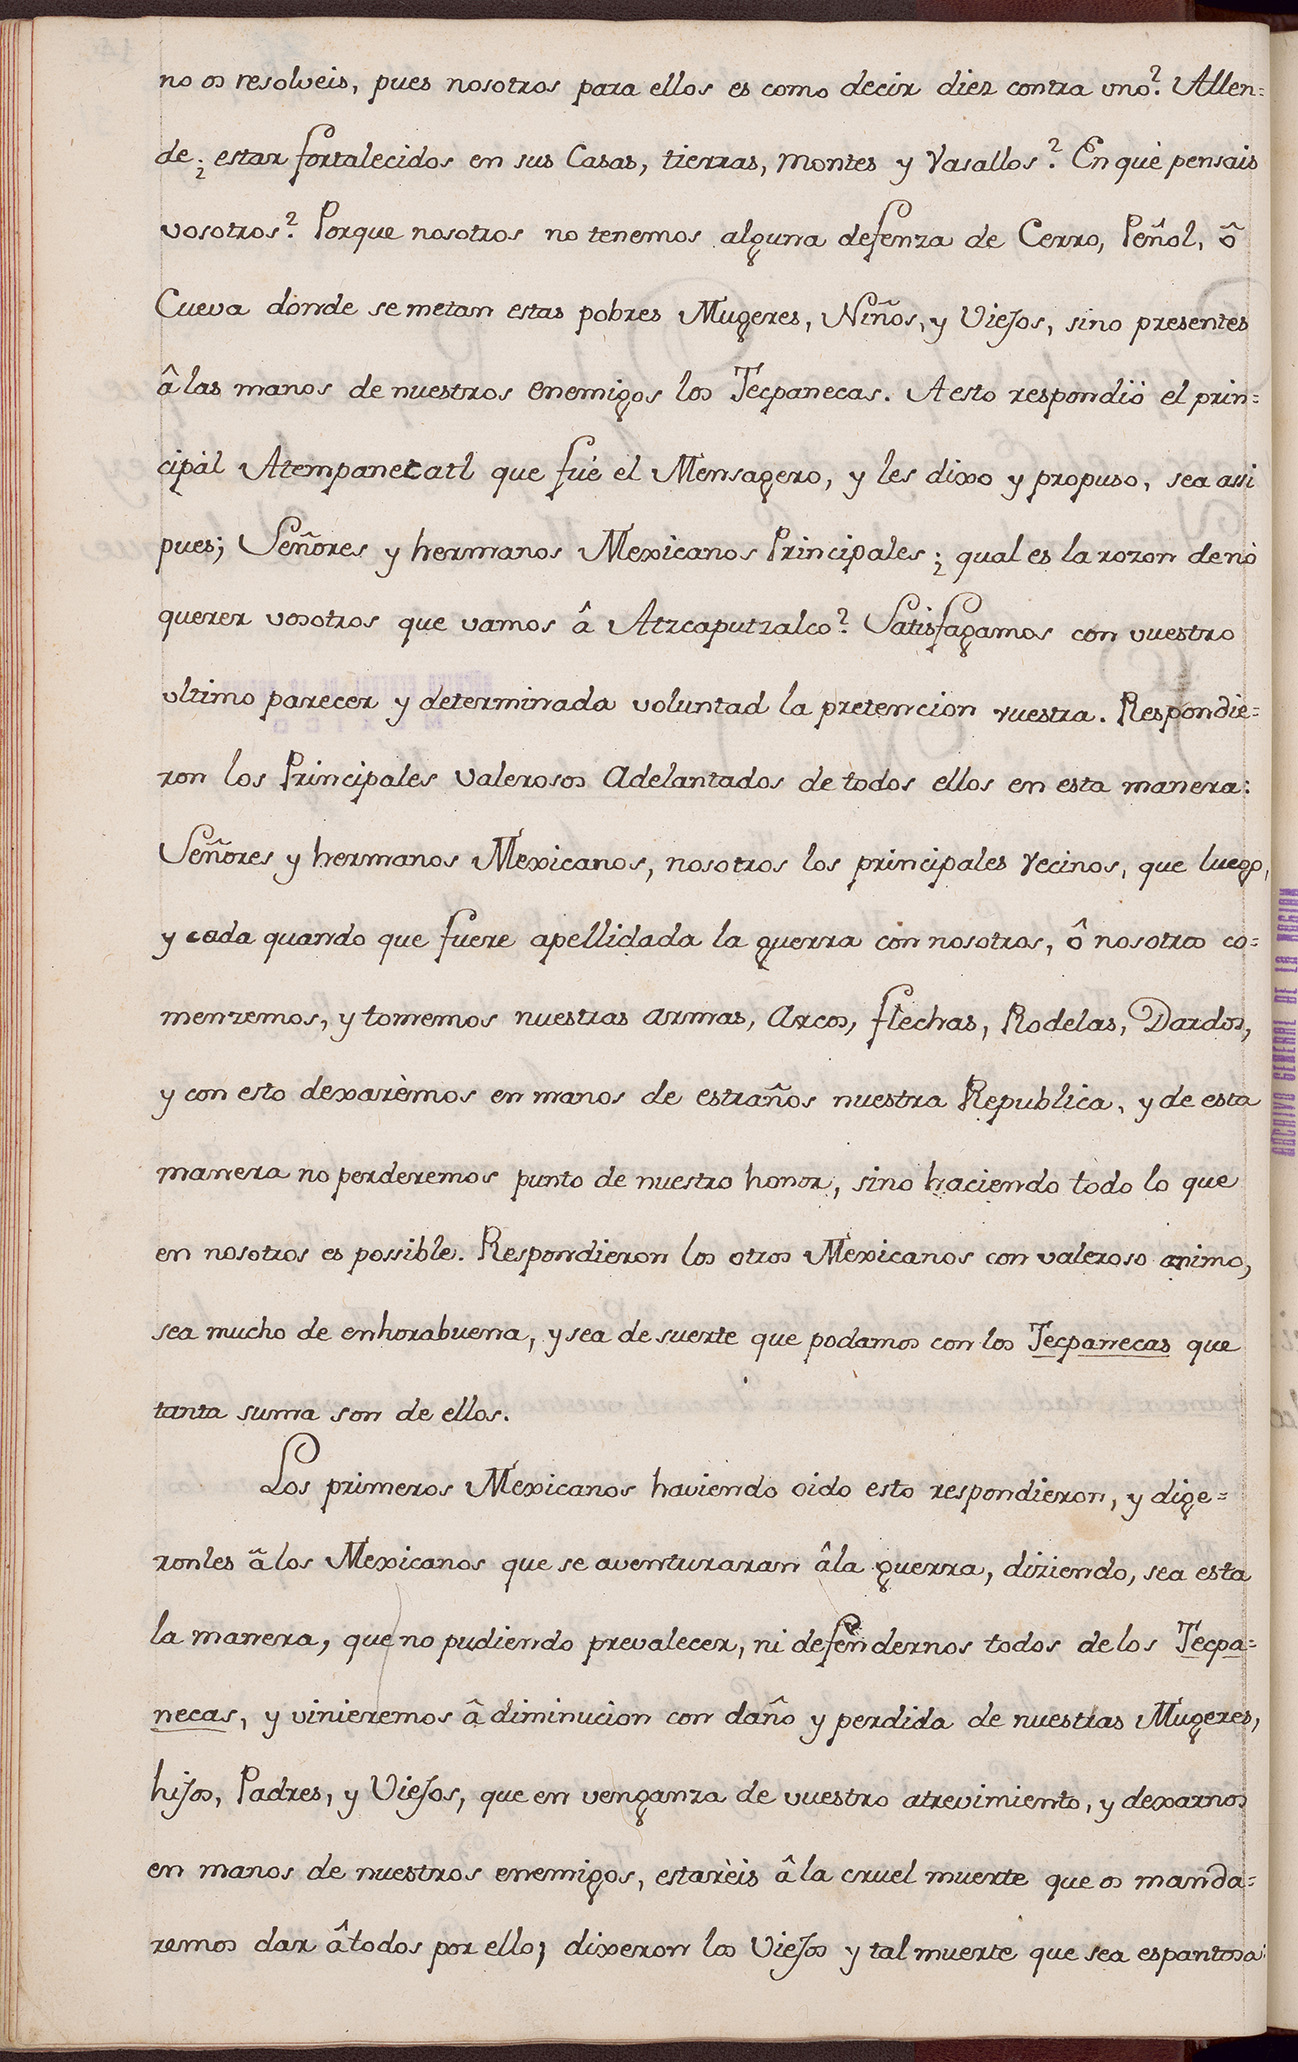 no os resolveis, pues nosotros para ellos es como decir diez contra uno? Allen=
de ¿ estar fortalecidos en sus Casas, tierras, montes y Vasallos? En què pensais
vosotros? Porque nosotros no tenemos alguna defenza de Cerro, Peñol, ô
Cueva donde se metan estas pobres Mugeres, Niños, y Viejos, sino presentes
â las manos de nuestros enemigos los Tecpanecas. A esto respondió el prin=
cipál Atempanecatl que fué el Mensagero, y les dixo y propuso, sea assi
pues; Señores y hermanos Mexicanos Principales ¿ qual es la rozon de nò
querer vosotros que vamos â Atzcaputzalco? Satisfagamos con vuestro
ultimo parecer y determinada voluntad la pretencion vuestra. Respondie=
ron los Principales valerosos Adelantados de todos ellos en esta manera:
Señores y hermanos Mexicanos, nosotros los principales vecinos, que luego,
y cada quando que fuere apellidada la guerra con nosotros, ô nosotros co=
menzemos, y tomemos nuestras armas, Arcos, flechas, Rodelas, Dardos,
y con esto dexarèmos en manos de estraños nuestra Republica, y de esta
manera no perderemos punto de nuestro honor, sino haciendo todo lo que
en nosotros es possible. Respondieron los otros Mexicanos con valeroso animo,
sea mucho de enhorabuena, y sea de suerte que podamos con los Tecpanecas que
tanta suma son de ellos.
Los primeros Mexicanos haviendo oido esto respondieron, y dige=
ronles â los Mexicanos que se aventuraran â la guerra, diziendo, sea esta
la manera, que no pudiendo prevalecer, ni defendernos todos de los Tecpa=
necas, y vinieremos â diminucion con daño y perdida de nuestras Mugeres,
hijos, Padres, y Viejos, que en venganza de vuestro atrevimiento, y dexarnos
en manos de nuestros enemigos, estarèis â la cruel muerte que os manda=
remos dar â todos por ello; dixeron los Viejos y tal muerte que sea espantosa
ARCHIVO GENERAL DE LA NACION